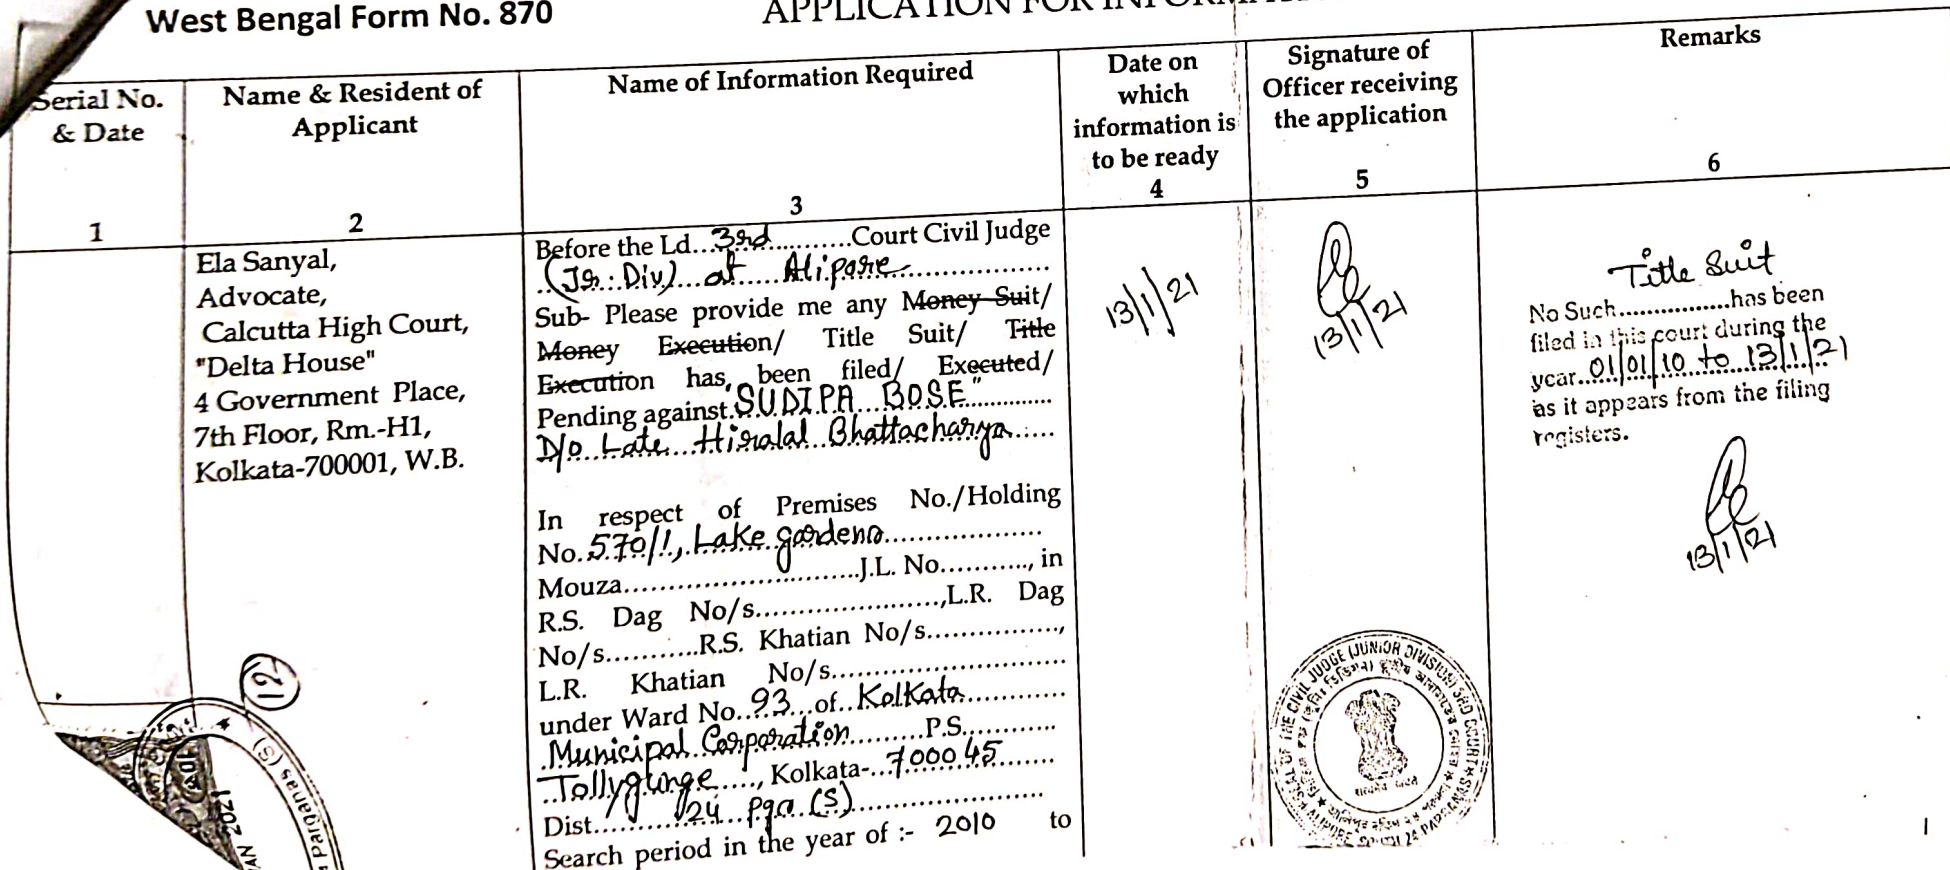 West Bengal Form No. 870
APPLICATION FOR
Serial No.
& Date
1
Name & Resident of
Applicant
2
Name of Information Required
3
Date on
which
information is
to be ready
4
Signature of
Officer receiving
the application
5
Remarks
6
Ela Sanyal,
Advocate,
Calcutta High Court,
"Delta House"
4 Government Place,
7th Floor, Rm.-H1,
Kolkata-700001, W.B.
121
Before the Ld...3rd............Court Civil Judge
(Jr. Div) at Alipore
Sub- Please provide me any Money Suit/
Money Execution/ Title Suit/ Title
Execution has been filed/ Executed/
Pending against. "SUDIPA BOSE"
D/o Late Hiralal Bhattacharya
In respect of Premises No./Holding
No. 570/1, Lake gardens
Mouza..............................J.L. No..........., in
R.S. Dag No/s.......................,L.R. Dag
No/s...........R.S. Khatian No/s................,
L.R. Khatian No/s.............................
under Ward No..93...of..Kolkata
Municipal Corporation.........P.S............
Tollygunge....., Kolkata-...700045
Dist........24 Pgs (S)
Search period in the year of :- 2010 to
13/1/21
13/1/21
Title Suit
No Such.................has been
filed in this court during the
year..01/01/10 to 13/1/21
as it appears from the filing
registers.
13/1/21
SEAL OF THE CIVIL JUDGE (JUNIOR DIVISION) 3RD COURT
JAN 2021
Parganas (S)
1